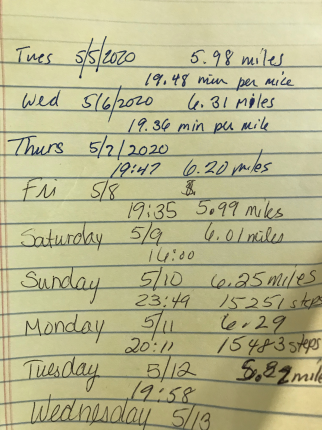 Tues 5/5/2020 5.98 miles
19.48 min per mile
Wed 5/6/2020 6.31 miles
19.36 min per mile
Thurs 5/7/2020
19:47 6.20 miles
Fri 5/8
19:35 5.99 miles
Saturday 5/9 6.01 miles
16:00
Sunday 5/10 6.25 miles
23:49 15251 steps
Monday 5/11 6.29
20:11 15483 steps
Tuesday 5/12 5.82 mile
19:58
Wednesday 5/13